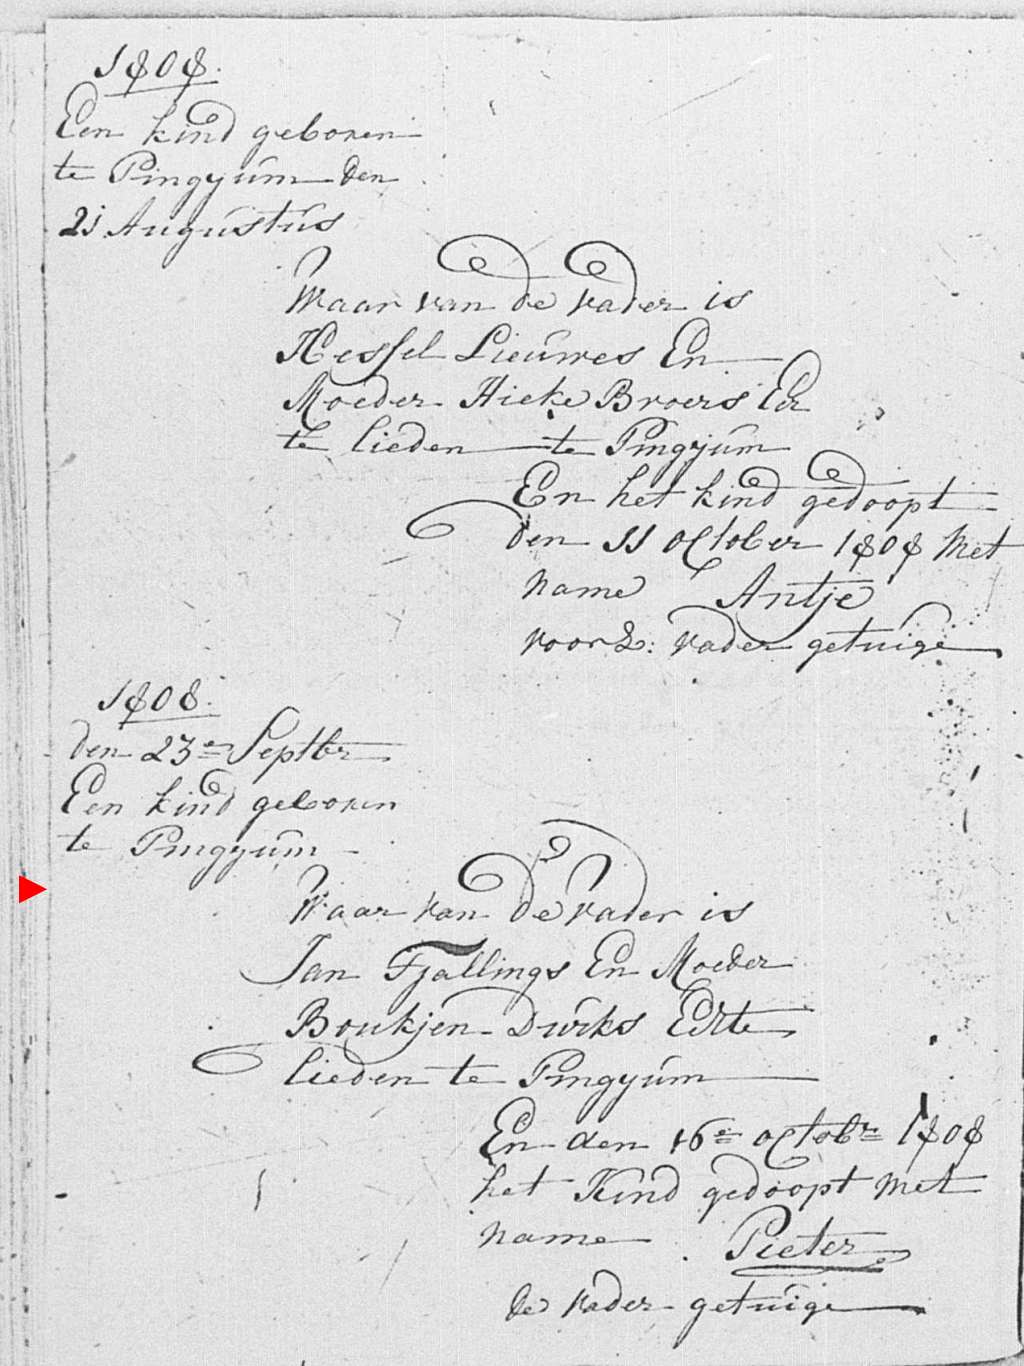 1808.
Een kind geboren
te Pingyum den
21 Augustus
Waar van de vader is
Hessel Lieuwes En
Moeder Hieke Broers Ech
te lieden te Pingjum
En het kind gedoopt
den 11 october 1808 Met
name Antje
voorz: vader getuige
1808.
den 23e Septbr
Een kind geboren
te Pingyum
Waar van de vader is
Jan Tjallings En Moeder
Boukjen Dirks Echte
lieden te Pingyum
En den 16e octobr 1808
het Kind gedoopt met
name Pieter
de vader getuige